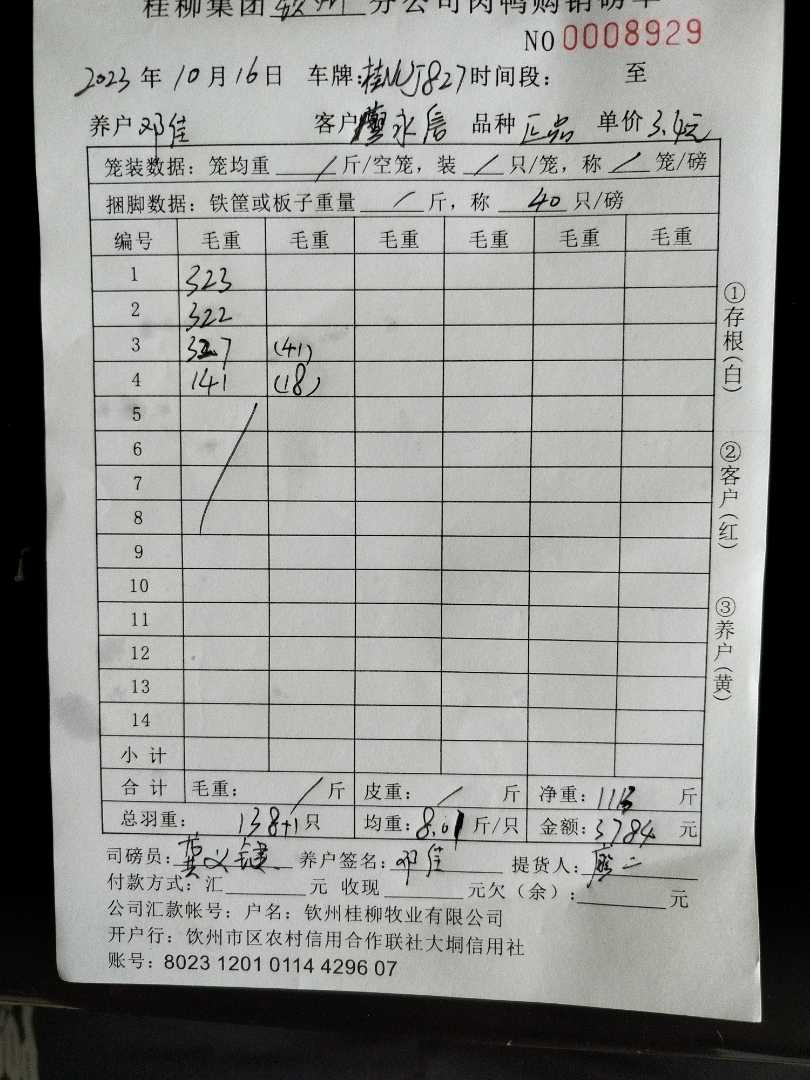 桂柳集团钦州分公司肉鸭购销磅单
NO 0008929
2023年10月16日 车牌:桂NUJ827时间段: 至
养户邓佳 客户廖永信 品种正品 单价3.4元
笼装数据：笼均重/斤/空笼，装/只/笼，称/笼/磅
捆脚数据：铁筐或板子重量/斤，称40只/磅
编号 毛重 毛重 毛重 毛重 毛重 毛重
1 323
2 322
3 327 (41)
4 141 (18)
5
6
7
8
9
10
11
12
13
14
小计
合计 毛重：/斤 皮重：/斤 净重：1113斤
总羽重：138+1只 均重：8.01斤/只 金额：3784元
司磅员：黄义键 养户签名：邓佳 提货人：廖二
付款方式：汇 元 收现 元欠（余）： 元
公司汇款帐号：户名：钦州桂柳牧业有限公司
开户行：钦州市区农村信用合作联社大垌信用社
账号：8023 1201 0114 4296 07
①存根(白)
②客户(红)
③养户(黄)